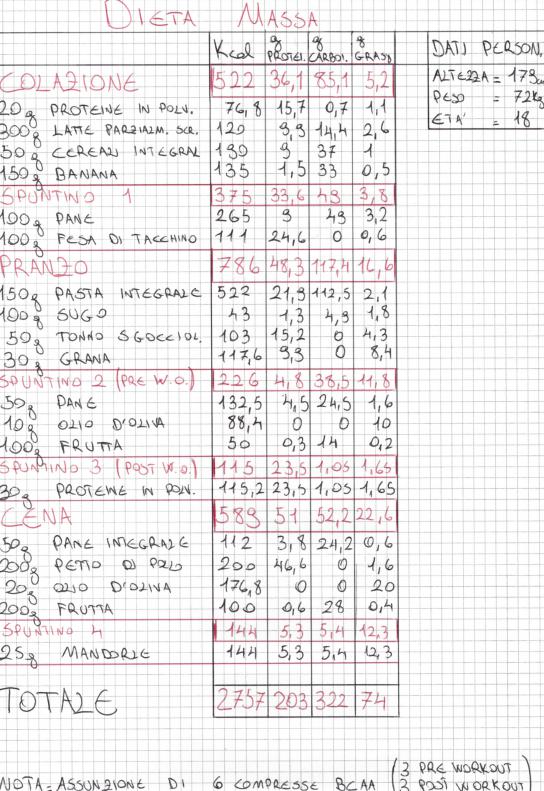 DIETA MASSA
Kcal g PROTEI. g CARBOI. g GRASSI
DATI PERSON.
ALTEZZA = 173cm
PESO = 72Kg
ETA' = 18
COLAZIONE 522 36,1 85,1 5,2
20g PROTEINE IN POLV. 76,8 15,7 0,7 1,1
300g LATTE PARZIALM. SCR. 120 9,9 14,4 2,6
50g CEREALI INTEGRAL 190 9 37 1
150g BANANA 135 1,5 33 0,5
SPUNTINO 1 375 33,6 49 3,8
100g PANE 265 9 49 3,2
100g FESA DI TACCHINO 111 24,6 0 0,6
PRANZO 786 48,3 117,4 16,6
150g PASTA INTEGRALE 522 21,9 112,5 2,1
100g SUGO 43 1,3 4,9 1,8
50g TONNO SGOCCIOL. 103 15,2 0 4,3
30g GRANA 117,6 9,9 0 8,4
SPUNTINO 2 (PRE W.O.) 226 4,8 38,5 11,8
50g PANE 132,5 4,5 24,5 1,6
10g OLIO D'OLIVA 88,4 0 0 10
100g FRUTTA 50 0,3 14 0,2
SPUNTINO 3 (POST W.O.) 115 23,5 1,05 1,65
30g PROTEINE IN POLV. 115,2 23,5 1,05 1,65
CENA 589 51 52,2 22,6
50g PANE INTEGRALE 112 3,8 24,2 0,6
200g PETTO DI POLLO 200 46,6 0 1,6
20g OLIO D'OLIVA 176,8 0 0 20
200g FRUTTA 100 0,6 28 0,4
SPUNTINO 4 144 5,3 5,4 12,3
25g MANDORLE 144 5,3 5,4 12,3
TOTALE 2757 203 322 74
NOTA = ASSUNZIONE DI 6 COMPRESSE BCAA (3 PRE WORKOUT
3 POST WORKOUT)